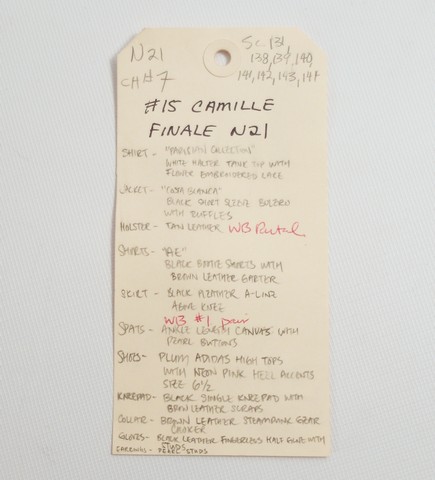 N21
CH#7
Sc. 131,
138, 139, 140,
141, 142, 143, 144
#15 CAMILLE
FINALE N21
SHIRT - "PARISIAN COLLECTION"
WHITE HALTER TANK TOP WITH
FLOWER EMBROIDERED LACE
JACKET - "COSA BLANCA"
BLACK SHORT SLEEVE BOLERO
WITH RUFFLES
HOLSTER - TAN LEATHER WB Rental
SHORTS - "AE"
BLACK BOOTIE SHORTS WITH
BROWN LEATHER GARTER
SKIRT - BLACK PLEATHER A-LINE
ABOVE KNEE
WB #1 pair
SPATS - ANKLE LENGTH CANVAS WITH
PEARL BUTTONS
SHOES - PLUM ADIDAS HIGH TOPS
WITH NEON PINK HEEL ACCENTS
SIZE 6½
KNEEPAD - BLACK SINGLE KNEEPAD WITH
BROWN LEATHER STRAPS
COLLAR - BROWN LEATHER STEAMPUNK GEAR
CHOKER
GLOVES - BLACK LEATHER FINGERLESS HALF GLOVE WITH
STUDS
EARRINGS - PEARL STUDS